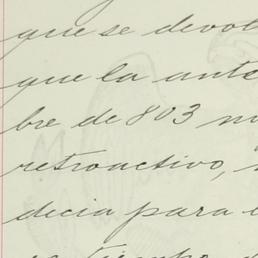 que se devol
que la ante
bre de 803 n
retroactivo,
decia para